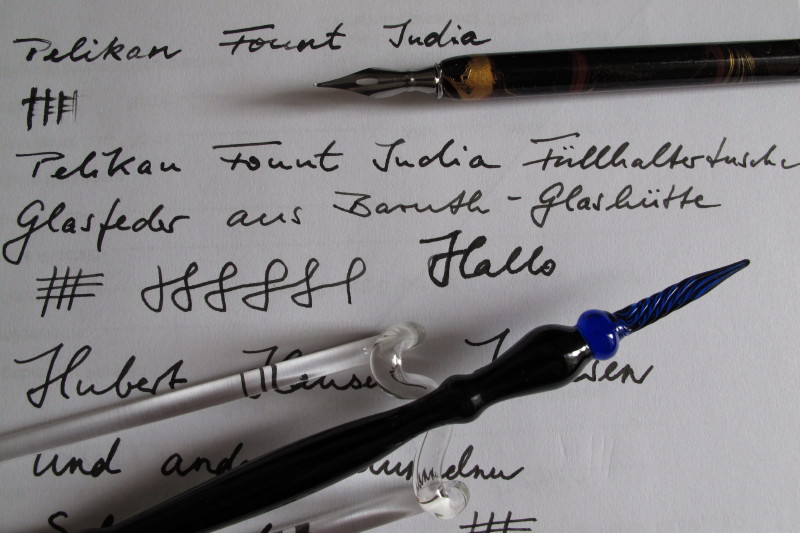 Pelikan Fount India
Pelikan Fount India Füllhaltertusche
Glasfeder aus Baruth-Glashütte
Hallo
Hubert
und